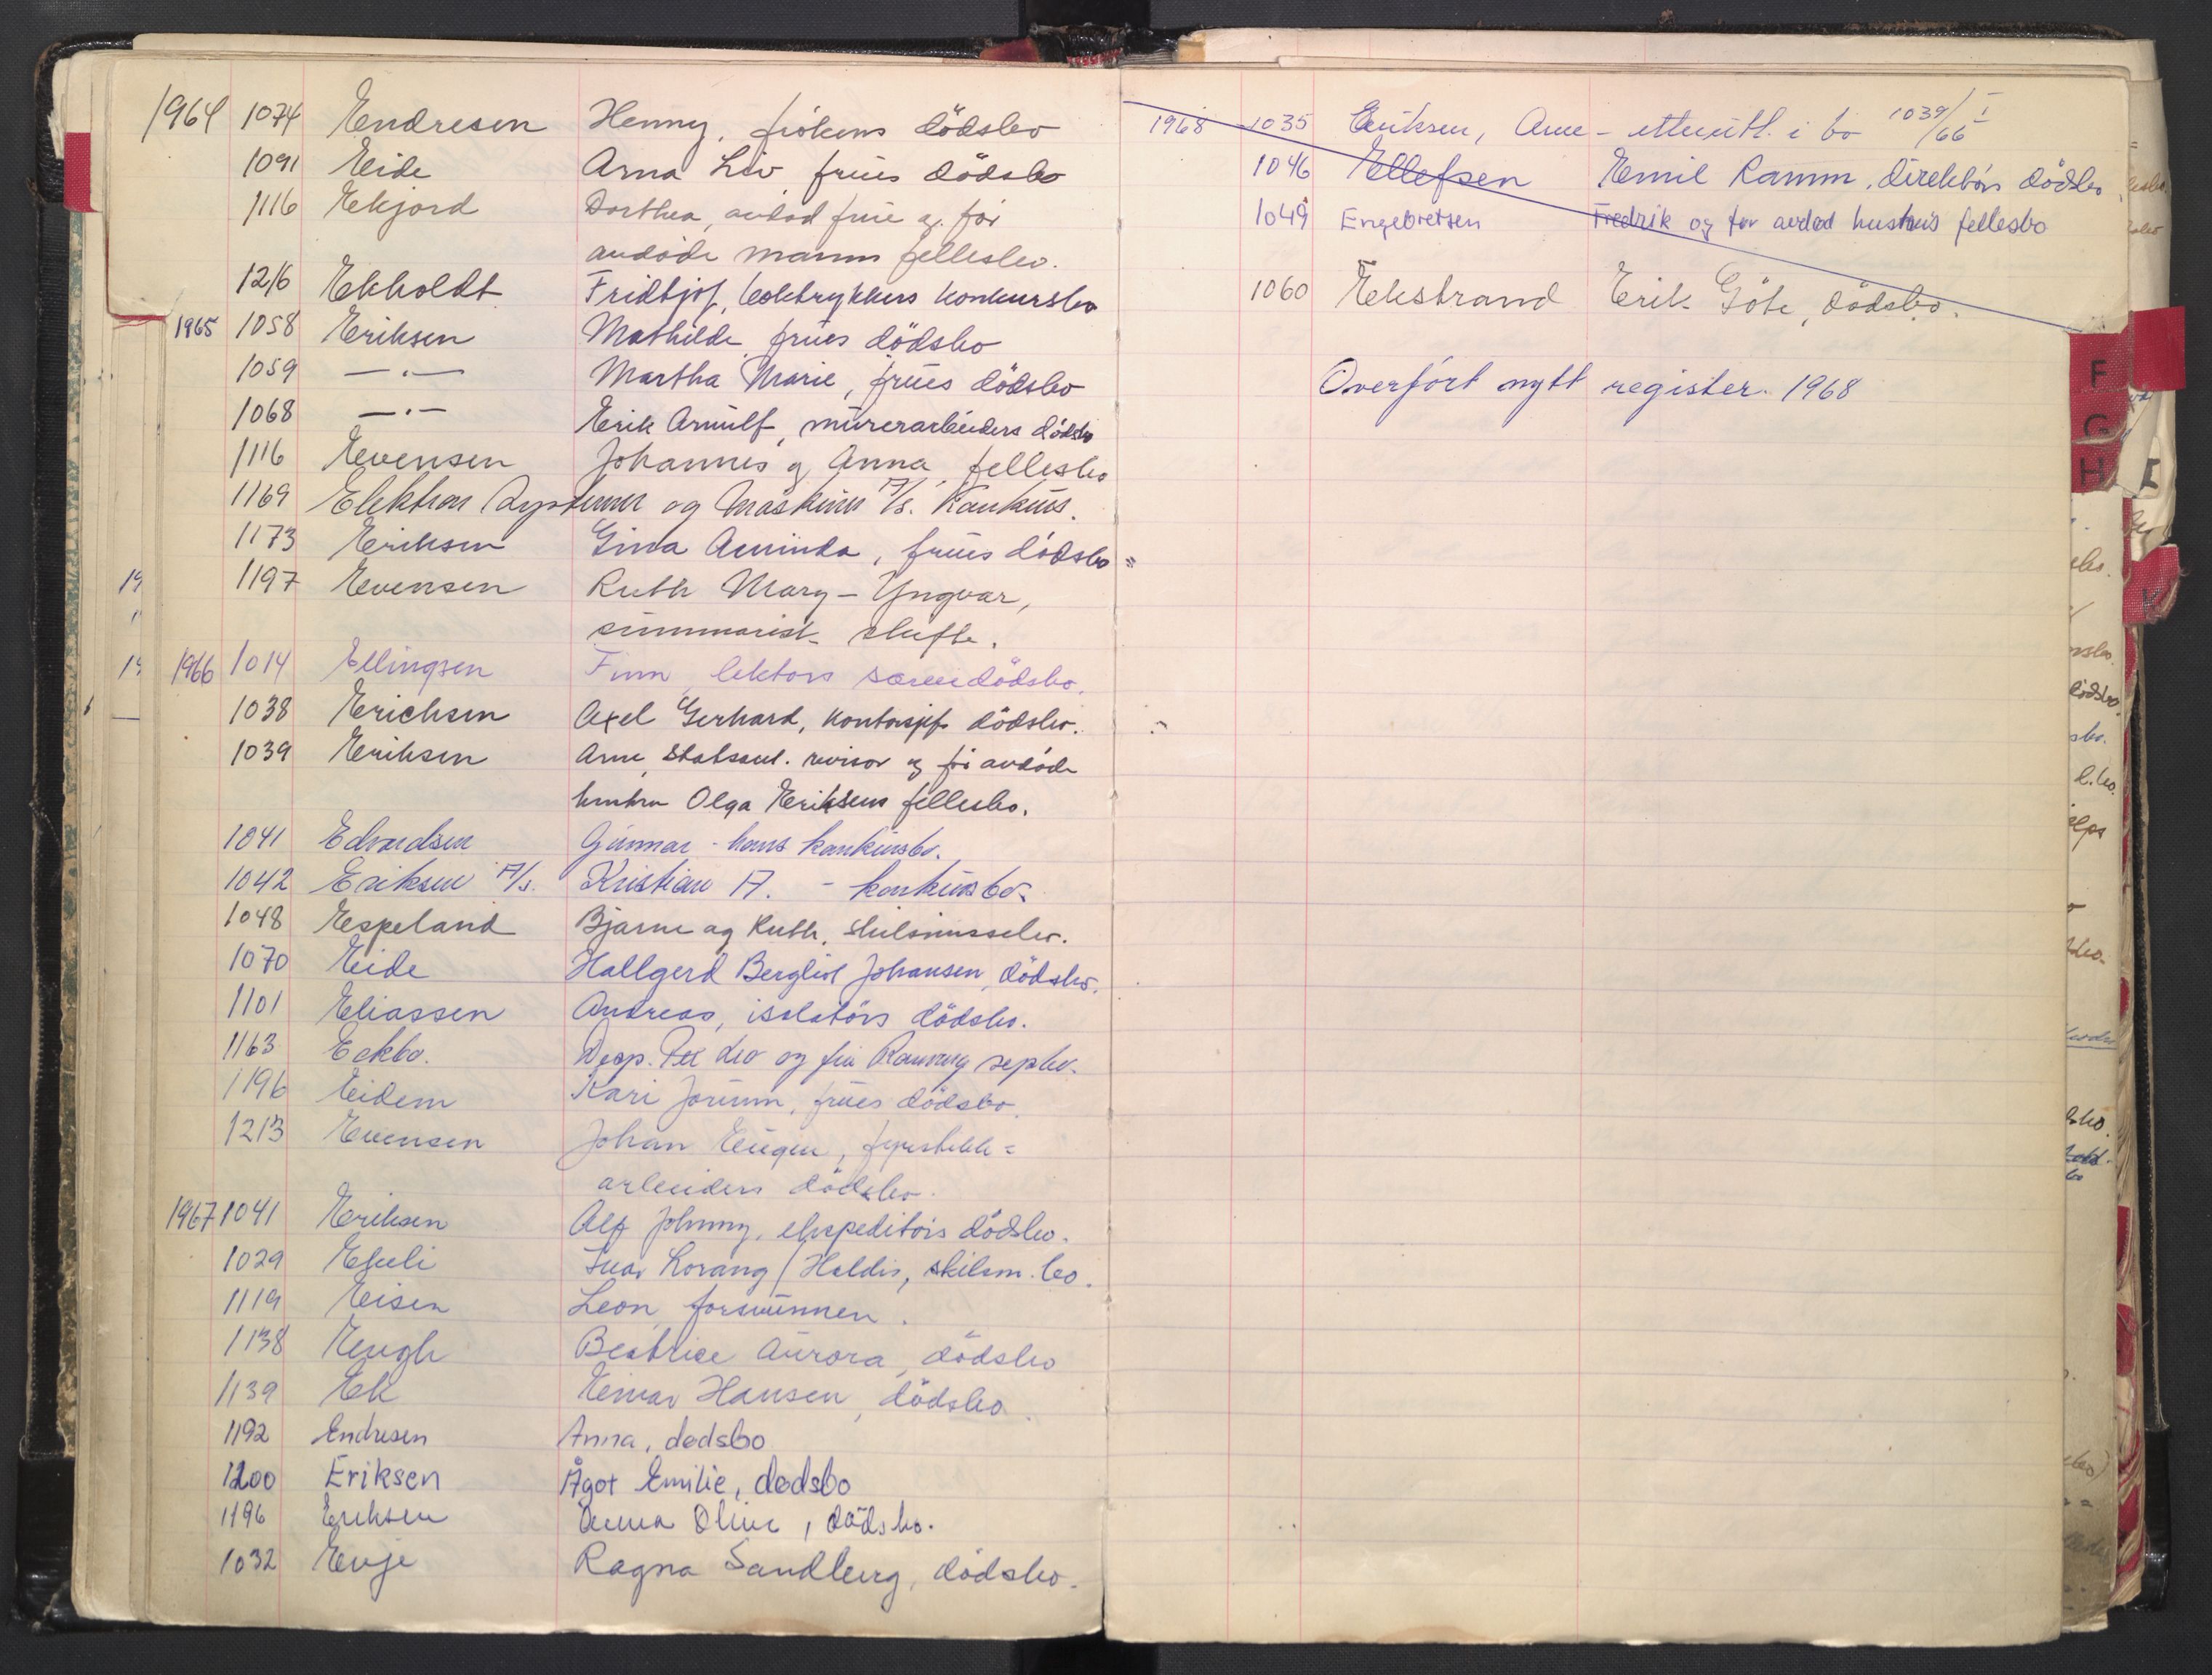 1964 1074 Endresen Henny, frökens dödsbo
1091 Eide Arna Liv frues dödsbo
1116 Ekjord Dorthea, avdöd frue og før
avdöde manns fellesbo.
1216 Ekholdt Fridtjof, boktrykkers konkursbo
1965 1058 Eriksen Mathilde frues dödsbo
1059 — . — Martha Marie, frues dödsbo
1068 — . — Erik Arnulf, murerarbeiders dödsbo
1116 Evensen Johannes og Anna, fellesbo
1169 Elektron Systemer og Maskiner A/S. Konkurs.
1173 Eriksen Gina Aminda, frues dödsbo =
1197 Evensen Ruth Mary - Yngvar,
summarisk skifte.
1966 1014 Ellingsen Finn, lektors dödsbo.
1038 Erichsen Axel Gerhard, kontorsjefs dödsbo.
1039 Eriksen Arne, statsaut. revisor og før avdöde
hustru Olga Eriksens fellesbo.
1041 Edvardsen Gunnar - hans konkursbo.
1042 Eriksen A/S. Kristian A. - konkursbo.
1048 Espeland Bjarne og Ruth, skilsmissebo.
1070 Eide Hallgerd Bergliot Johansen, dödsbo.
1101 Eliassen Andreas, isolatörs dödsbo.
1163 Eckbo. Disp. Per og fru Rannveig sepbo.
1196 Eidem Kari Jorunn, frues dödsbo.
1213 Evensen Johan Eugen, fyrstikk=
arbeiders dödsbo.
1967 1041 Eriksen Alf Johnny, ekspeditörs dödsbo.
1029 Ivar Korang / Haldis, skilsm. bo.
1119 Eisen Leon, forsvunnen.
1138 Eugh Beatrice Aurora, dödsbo
1139 Ek Einar Hansen, dödsbo.
1192 Endresen Anna, dødsbo
1200 Eriksen Ågot Emilie, dødsbo
1196 Eriksen Anna Oline, dödsbo.
1032 Evje Ragna Sandberg, dödsbo.
1968 1035 Eriksen, Arne - etterutl. i bo 1039/66 I
1046 Ellefsen Emil Ramm, direktörs dödsbo
1049 Engebretsen Fredrik og før avdød hustrus fellesbo
1060 Ekstrand Erik Göte, dödsbo.
Overfört nytt register 1968
F
G
H
I
K